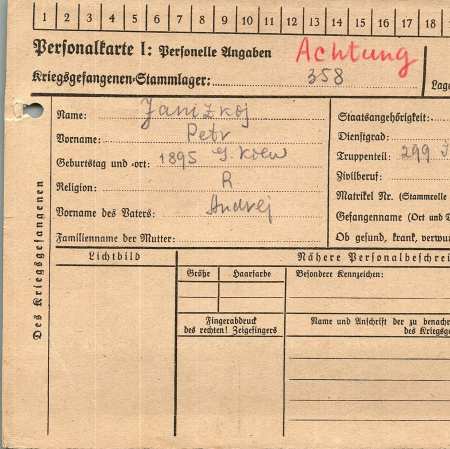 1 2 3 4 5 6 7 8 9 10 11 12 13 14 15 16 17 18
Personalkarte I: Personelle Angaben Achtung
Kriegsgefangenen-Stammlager: 358 Lage
Name: Janizkoj
Vorname: Petr
Geburtstag und -ort: 1895 G. Kiew
Religion: R
Vorname des Vaters: Andrej
Familienname der Mutter:
Staatsangehörigkeit:
Dienstgrad:
Truppenteil: 299
Zivilberuf:
Matrikel Nr. (Stammrolle
Gefangennahme (Ort und D
Ob gesund, krank, verwun
Des Kriegsgefangenen
Lichtbild Nähere Personalbeschrei
Größe Haarfarbe Besondere Kennzeichen:
Fingerabdruck
des rechten! Zeigefingers
Name und Anschrift der zu benach
des Kriegsge